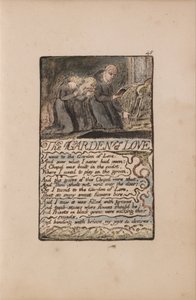 The GARDEN of LOVE
I went to the Garden of Love.
And saw what I never had seen:
A Chapel was built in the midst,
Where I used to play on the green.
And the gates of this Chapel were shut,
And Thou shalt not. writ over the door;
So I turn'd to the Garden of Love,
That so many sweet flowers bore,
And I saw it was filled with graves,
And tomb-stones where flowers should be:
And Priests in black gowns, were walking their
rounds,
And binding with briars, my joys & desires.